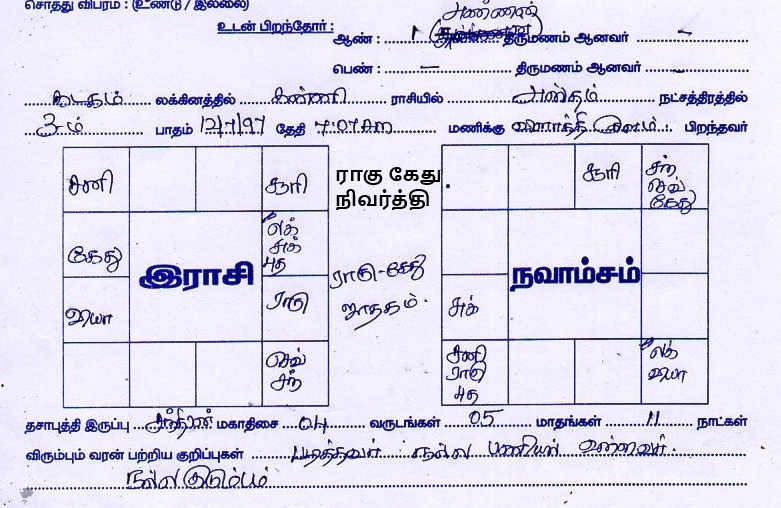 சொத்து விபரம் : (உண்டு / இல்லை)
அண்ணன்
உடன் பிறந்தோர் : ஆண் : 1 திருமணம் ஆனவர் -
பெண் : - திருமணம் ஆனவர் -
கடகம் லக்கினத்தில் கன்னி ராசியில் அஸ்தம் நட்சத்திரத்தில்
3-ம் பாதம் 12/7/97 தேதி 7.07 AM மணிக்கு பிறந்தவர்
சனி சூரி
கேது லக் சுக் புத
இராசி
வியா ராகு
செவ் சந்
ராகு கேது
நிவர்த்தி
ராகு-கேது
ஜாதகம்.
சூரி சந் செவ் கேது
நவாம்சம்
சுக்
சனி ராகு புத லக் வியா
தசாபுத்தி இருப்பு சந்திரன் மகாதிசை 04 வருடங்கள் 05 மாதங்கள் 11 நாட்கள்
விரும்பும் வரன் பற்றிய குறிப்புகள் படித்தவர் நல்ல பணியில் உள்ளவர்.
நல்ல குடும்பம்